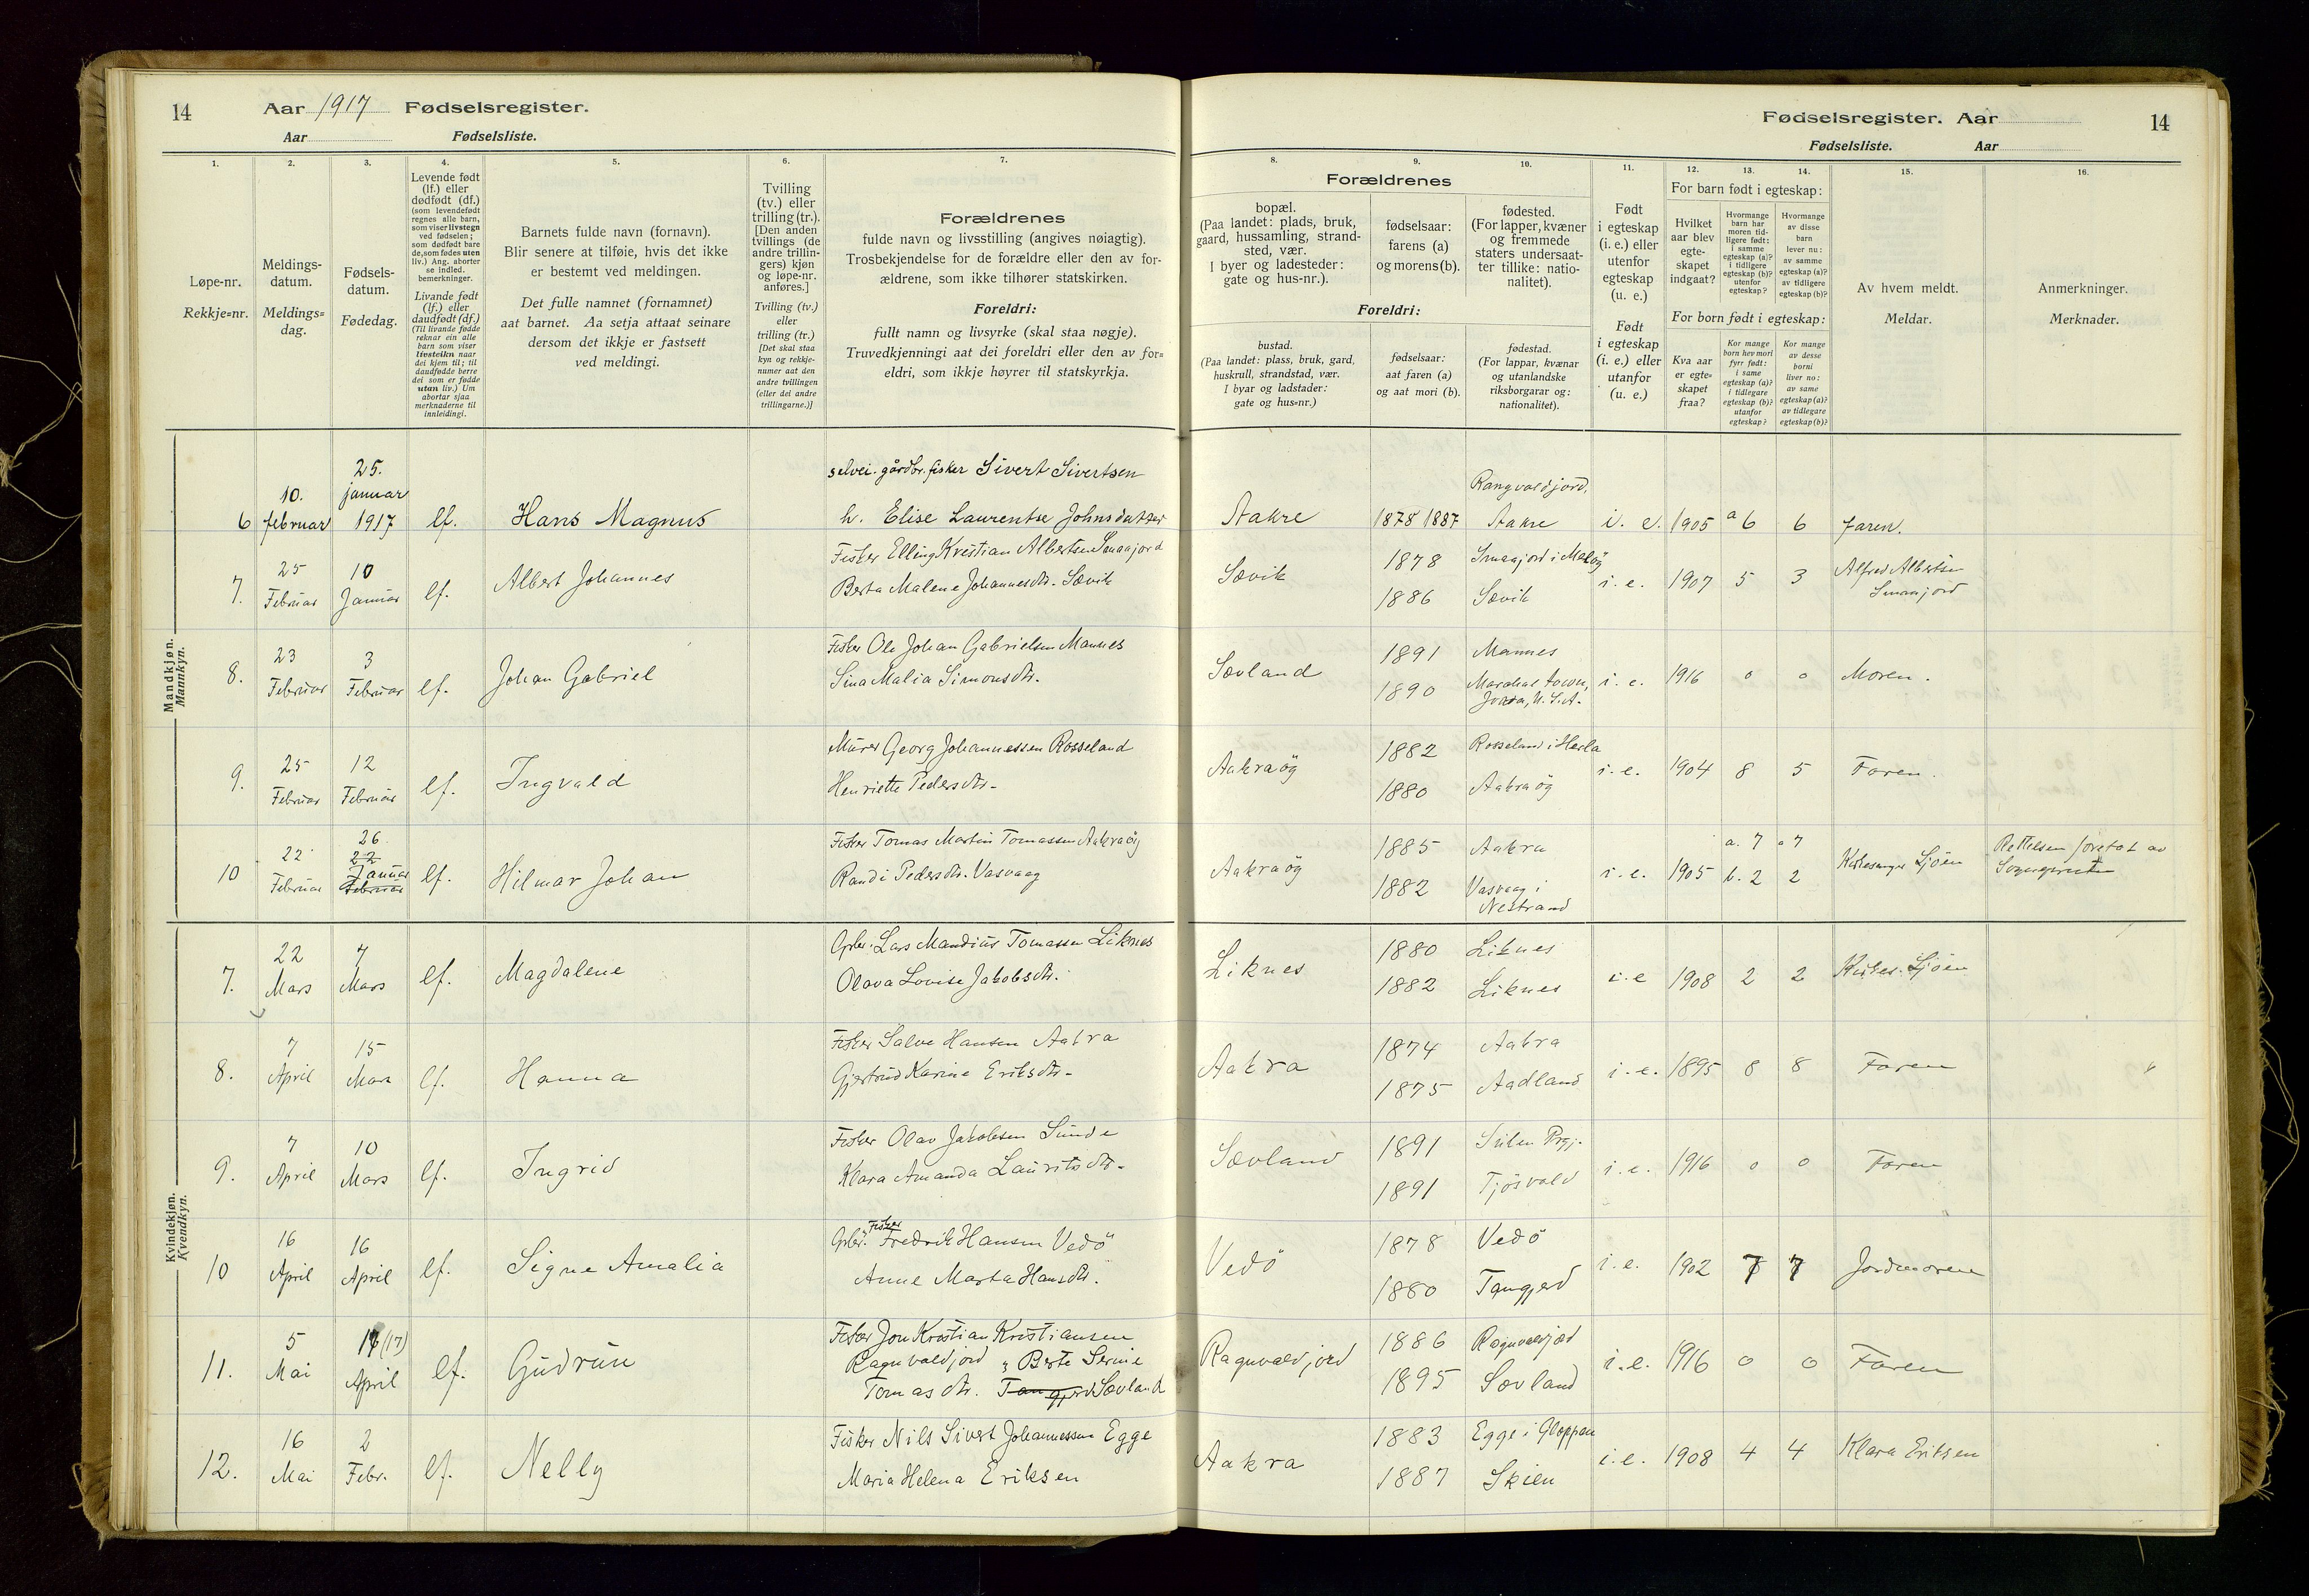 14 Aar 1917 Fødselsregister.
Aar Fødselsliste.
Fødselsregister. Aar 14
Fødselsliste. Aar
1. 2. 3. 4. 5. 6. 7. 8. 9. 10. 11. 12. 13. 14. 15. 16.
Løpe-nr.
Rekkje=nr.
Meldings-
datum.
Meldings=
dag.
Fødsels-
datum.
Fødedag.
Levende født
(lf.) eller
dødfødt (df.)
(som levendefødt
regnes alle barn,
som viser livstegn
ved fødselen;
som dødfødt bare
de, som fødes uten
liv.) Ang. aborter
se indled.
bemerkninger.
Livande født
(lf.) eller
daudfødt (df.)
(Til livande fødde
reknar ein alle
barn som viser
livsteikn naar
dei kjem til; til
daudfødde berre
dei som er fødde
utan liv.) Um
abortar sjaa
merknaderne til
innleidingi.
Barnets fulde navn (fornavn).
Blir senere at tilføie, hvis det ikke
er bestemt ved meldingen.
Det fulle namnet (fornamnet)
aat barnet. Aa setja attaat seinare
dersom det ikkje er fastsett
ved meldingi.
Tvilling
(tv.) eller
trilling (tr.).
[Den anden
tvillings (de
andre trillin-
gers) kjøn
og løpe-nr.
anføres.]
Tvilling (tv.)
eller
trilling (tr.)
[Det skal staa
kyn og rekkje-
numer aat den
andre tvillingen
(eller dei andre
trillingarne.)]
Forældrenes
fulde navn og livsstilling (angives nøiagtig).
Trosbekjendelse for de forældre eller den av for-
ældrene, som ikke tilhører statskirken.
Foreldri:
fullt namn og livsyrke (skal staa nøgje).
Truvedkjenningi aat dei foreldri eller den av for=
eldri, som ikkje høyrer til statskyrkja.
Forældrenes
bopæl.
(Paa landet: plads, bruk,
gaard, hussamling, strand-
sted, vær.
I byer og ladesteder:
gate og hus-nr.).
fødselsaar:
farens (a)
og morens (b).
fødested.
(For lapper, kvæner
og fremmede
staters undersaat-
ter tillike: natio-
nalitet).
Foreldri:
bustad.
(Paa landet: plass, bruk, gard,
huskrull, strandstad, vær.
I byar og ladstader:
gate og hus=nr.)
fødselsaar:
aat faren (a)
og aat mori (b).
fødestad.
(For lappar, kvænar
og utanlandske
riksborgarar og:
nationalitet).
Født
i egteskap
(i. e.) eller
utenfor
egteskap
(u. e.)
Født
i egteskap
(i. e.) eller
utanfor
(u. e.)
For barn født i egteskap:
Hvilket
aar blev
egte-
skapet
indgaat?
Hvormange
barn har
moren tid-
ligere født:
i samme
egteskap (a)?
i tidligere
egteskap (b)?
utenfor
egteskap?
Hvormange
av disse
barn
lever nu:
av samme
egteskap (a)?
av tidligere
egteskap (b)?
For born født i egteskap:
Kva aar
er egte=
skapet
fraa?
Kor mange
born hev mori
fyrr født:
i same
egteskap (a)?
i tidlegare
egteskap (b)?
utanfor
egteskap?
Kor mange
av desse
borni
liver no:
av same
egteskap (a)?
av tidlegare
egteskap (b)?
Av hvem meldt.
Meldar.
Anmerkninger.
Merknader.
Mandkjøn.
Mannkyn.
25.
10. januar
6 februar 1917 lf. Hans Magnus
selvei. gårdbr. fisker Sivert Sivertsen
h. Elise Laurentse Johnsdatter
Rangvaldjord,
Aakre 1878 1887 Aakre i. e. 1905 a 6 6 faren.
25 10
7. Februar Januar lf. Albert Johannes
Fisker Elling Kristian Albertsen Smaajord
Berta Malene Johannesdtr. Sævik
Sævik 1878 Smaajord i
1886 Sævik i. e. 1907 5 3
Alfred Albertsen
Smaajord
23 3
8. Februar Februar lf. Johan Gabriel
Fisker Ole Johan Gabrielsen Mannes
Sina Malia Simonsdtr.
Sævland 1891 Mannes
1890 Marshal town,
U. S. A. i. e. 1916 0 0 Moren.
25 12
9. Februar Februar lf. Ingvald
Murer Georg Johannessen Rosseland
Henriette Pedersdtr.
Aakraøg 1882 Rosseland i
1880 Aakraøg i. e. 1904 8 5 Faren.
26
22 22
10 Februar Januar Februar lf. Hilmar Johan
Fisker Tomas Martin Tomassen Aakraøg
Randi Pedersdtr. Vasvaag
Aakraøg 1885 Aakra
1882 Vasvaag i
Nestrand i. e. 1905 a. 7 a 7
b. 2 2 Kirkesanger Sjöen
Rettelsen foretat av
Sogneprest
Kvindekjøn.
Kvendkyn.
22 7
7. Mars Mars lf. Magdalene
Gbr. Lars Mandius Tomassen Liknes
Olava Lovise Jakobsdtr.
Liknes 1880 Liknes
1882 Liknes i. e 1908 2 2 Kirkes. Sjöen
7 15
8. April Mars lf. Hanna
Fisker Salve Hansen Aakra
Gjertrud Karine Eriksdtr.
Aakra 1874 Aakra
1875 Aadland i. e. 1895 8 8 Faren
7 10
9. April Mars lf. Ingrid
Fisker Olav Jakobsen Sunde
Klara Amanda Lauritsdtr.
Sævland 1891
1891 Tjösvold i. e. 1916 0 0 Faren
16 16
10 April April lf. Signe Amalia
Fisker
Gbr. Fredrik Hansen Vedö
Anne Marta Hansdtr.
Vedö 1878 Vedö
1880 Tangjerd i. e. 1902 7 7 Jordmoren
5 (17)
11. Mai April lf. Gudrun
Fisker Jon Kristian Kristiansen
Ragnvaldjord, Berte Serine
Tomasdtr. Tangjerd Sævland
Ragnvaldjord 1886 Ragnvaldjord
1895 Sævland i. e. 1916 0 0 Faren
16 2
12. Mai Febr. lf. Nelly
Fisker Nils Sivert Johannessen Egge
Maria Helena Eriksen
Aakra 1883 Egge i Gloppen
1887 Skien i. e. 1908 4 4 Klara Eriksen